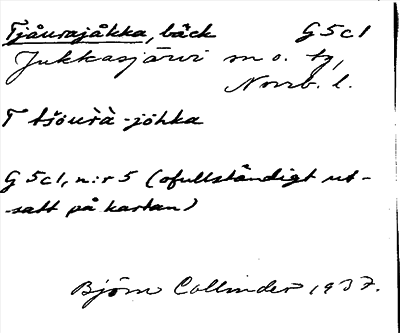 Tjåurajåkka, bäck G5c1
Jukkasjärvi sn o. tg,
Norrb. l.
T tšöurà-jöhka
G5c1, n:r 5 (ofullständigt ut-
satt på kartan)
Björn Collinder 1937.